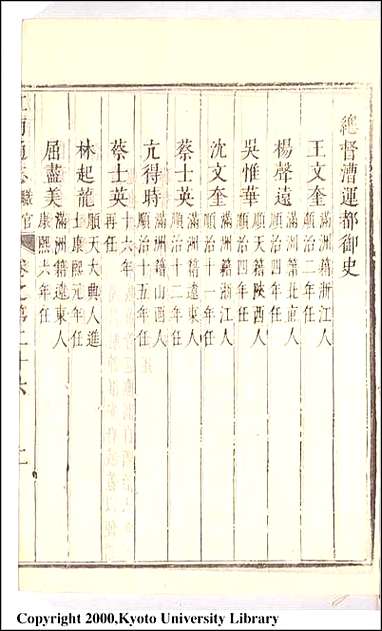 總督漕運都御史
王文奎 滿洲籍浙江人
順治二年任
楊聲遠 滿洲籍北直人
順治四年任
吳惟華 順天籍陝西人
順治四年任
沈文奎 滿洲籍浙江人
順治十一年任
蔡士英 滿洲籍遼東人
順治十二年任
亢得時 滿洲籍山西人
順治十五年任
蔡士英 十六年
再任
林起龍 順天大興人進
士康熙元年任
屈盡美 滿洲籍遼東人
康熙六年任
江南通志 職官 卷之第二十六
Copyright 2000,Kyoto University Library